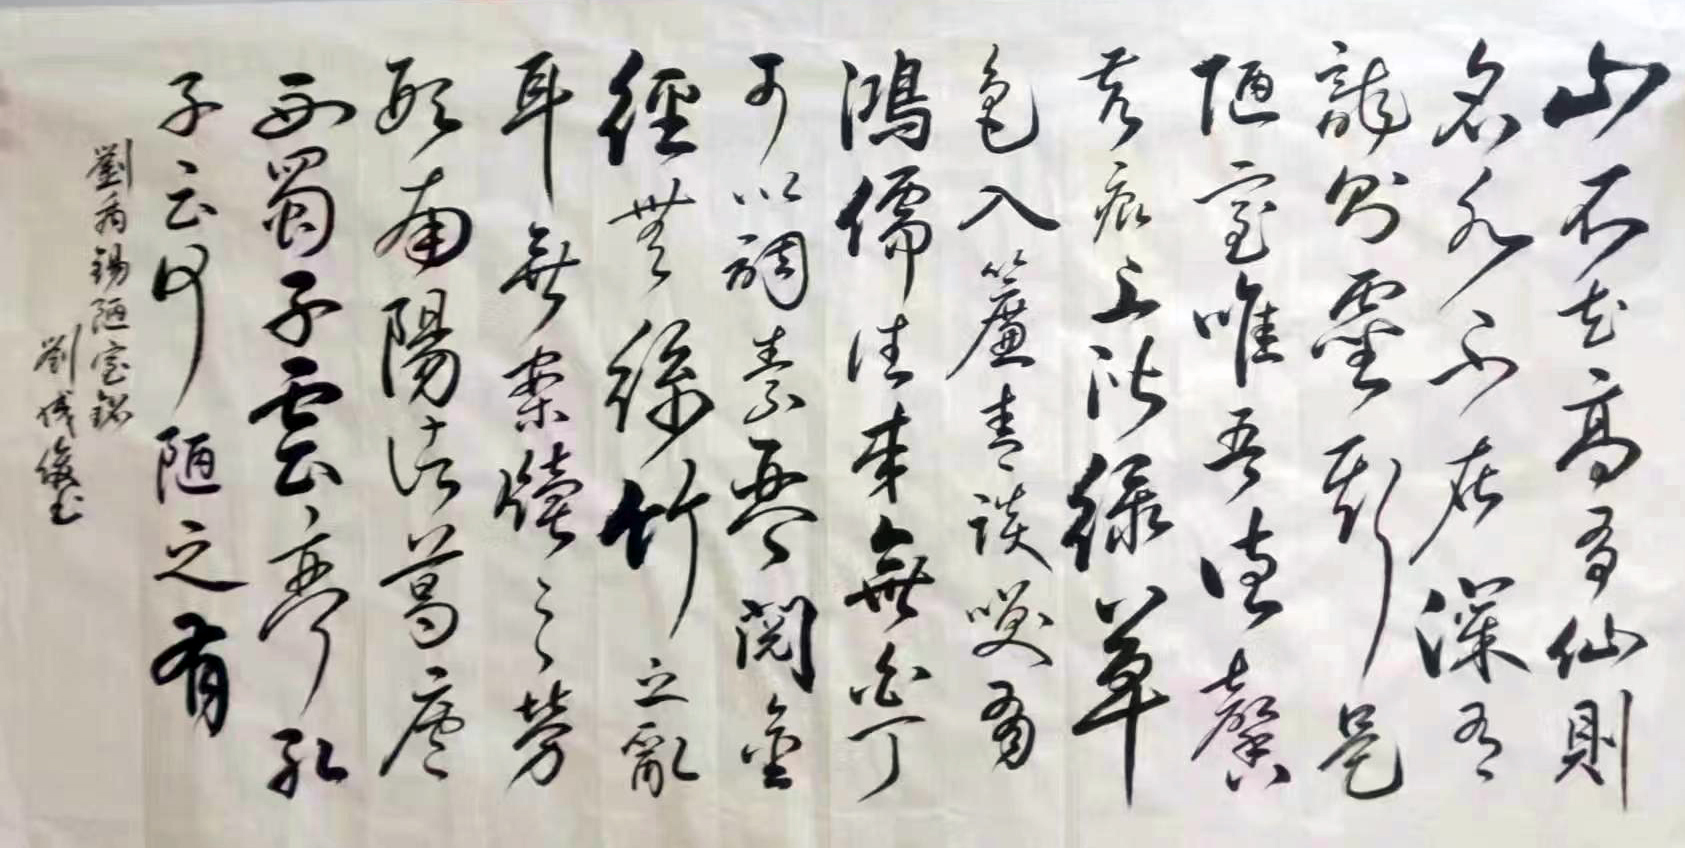 山不在高有仙則
名水不在深有
龍則靈斯是
陋室唯吾德馨
苔痕上階綠草
色入簾青談笑有
鴻儒往來無白丁
可以調素琴閱金
經無絲竹之亂
耳無案牘之勞
形南陽諸葛廬
西蜀子雲亭孔
子云何陋之有
劉禹錫陋室銘
劉俊書